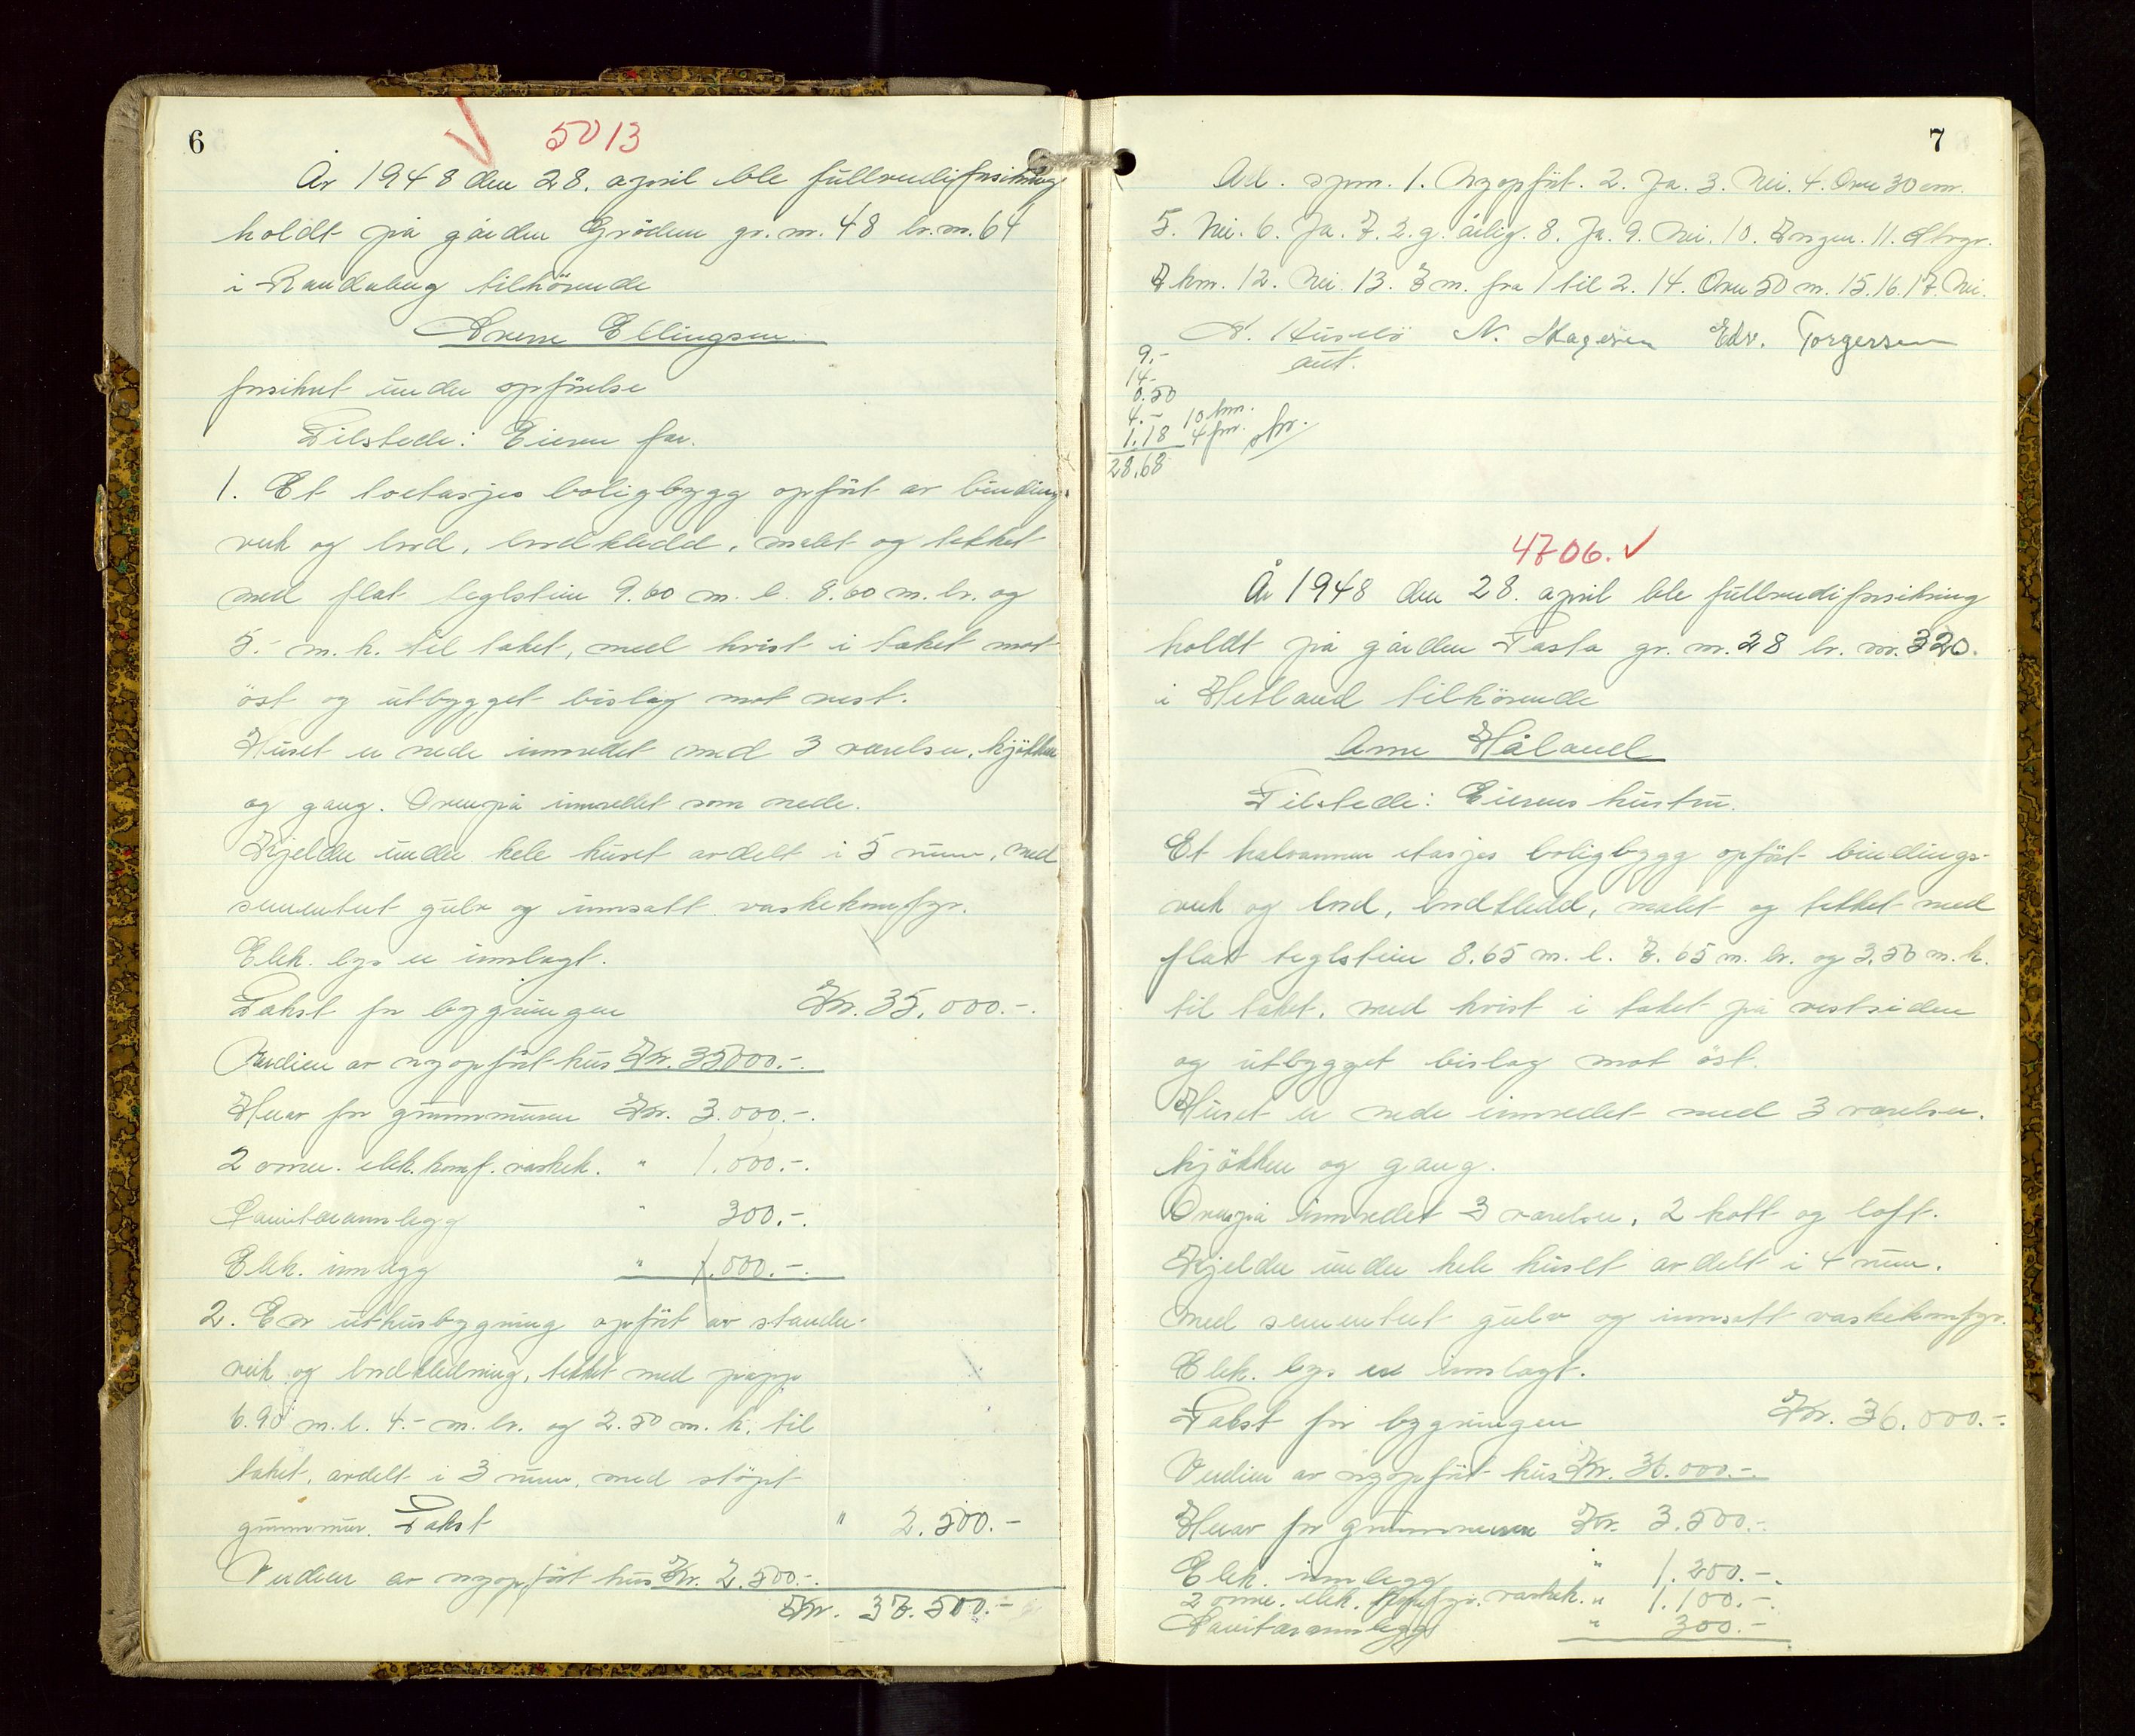 6
5013
År 1948 den 28. april ble fullverdiforsikring
holdt på gården Gröden gr. nr. 48 br. nr. 64
i Randaberg tilhörende
Sverre Ellingsen.
forsikret under opförelse
Tilstede: Eieren far.
1. Et toetasjes boligbygg opfört av bindings-
verk og bord, bordkledd, malet og tekket
med flat teglstein 9.60 m. l. 8.60 m. br. og
5.- m. h. til taket, med kvist i taket mot
öst og utbygget bislag mot vest.
Huset er nede innredet med 3 værelser, kjökken
og gang. Ovenpå innredet som nede.
Kjelder under hele huset avdelt i 5 rum, med
sementert gulv og innsatt vaskekomfyr.
Elek. lys er innlagt.
Takst for bygningen Kr. 35.000.-.
Verdien av nyopfört hus Kr. 35000.-.
Herav for grunnmuren Kr. 3.000.-.
2 ovner. elek. komf. vaskek. " 1.000.-.
Sanitæranlegg " 300.-.
Elek. innlegg " 1.000.-.
2. En uthusbygning opfört av stender-
verk og bordkledning, tekket med papp
6.90 m. l. 4.- m. br. og 2.50 m. h. til
taket, avdelt i 3 rum, med stöpt
grunnmur. Takst " 2.500.-
Verdien av nyopfört hus Kr. 2.500.-.
Kr. 37.500.-
7
Ad. spm. 1. Nyopfört. 2. Ja. 3. Nei. 4. Over 30 cm.
5. Nei. 6. Ja. 7. 2. g. årlig. 8. Ja. 9. Nei. 10. Ingen. 11. Stvgr.
7 km. 12. Nei. 13. 3 m. fra 1 til 2. 14. Over 50 m. 15. 16. 17. Nei.
N. Skageren Edv. Torgersen
aut.
9.-
14.-
0.50
4.- 10 km.
1.18 4 for.
28.68
4706.
År 1948 den 28. april ble fullverdiforsikring
holdt på gården Tasta gr. nr. 28 br. nr. 320.
i Hetland tilhörende
Arne Håland
Tilstede: Eierens hustru.
Et halvannen etasjes boligbygg opfört bindings-
verk og bord, bordkledd, malet og tekket med
flat teglstein 8.65 m. l. 7.65 m. br. og 3.50 m. h.
til taket, med kvist i taket på vestsiden
og utbygget bislag mot öst.
Huset er nede innredet med 3 værelser.
kjökken og gang.
Ovenpå innredet 3 værelser, 2 kott og loft.
Kjelder under hele huset avdelt i 4 rum.
med sementert gulv og innsatt vaskekomfyr.
Elek. lys er innlagt.
Takst for bygningen Kr. 36.000.-.
Verdien av nyopfört hus Kr. 36.000.-.
Herav for grunnmuren Kr. 3.500.-.
Elek. innlegg " 1.200.-.
2 ovner. elek. komfyr. vaskek. " 1.100.-.
Sanitæranlegg " 300.-